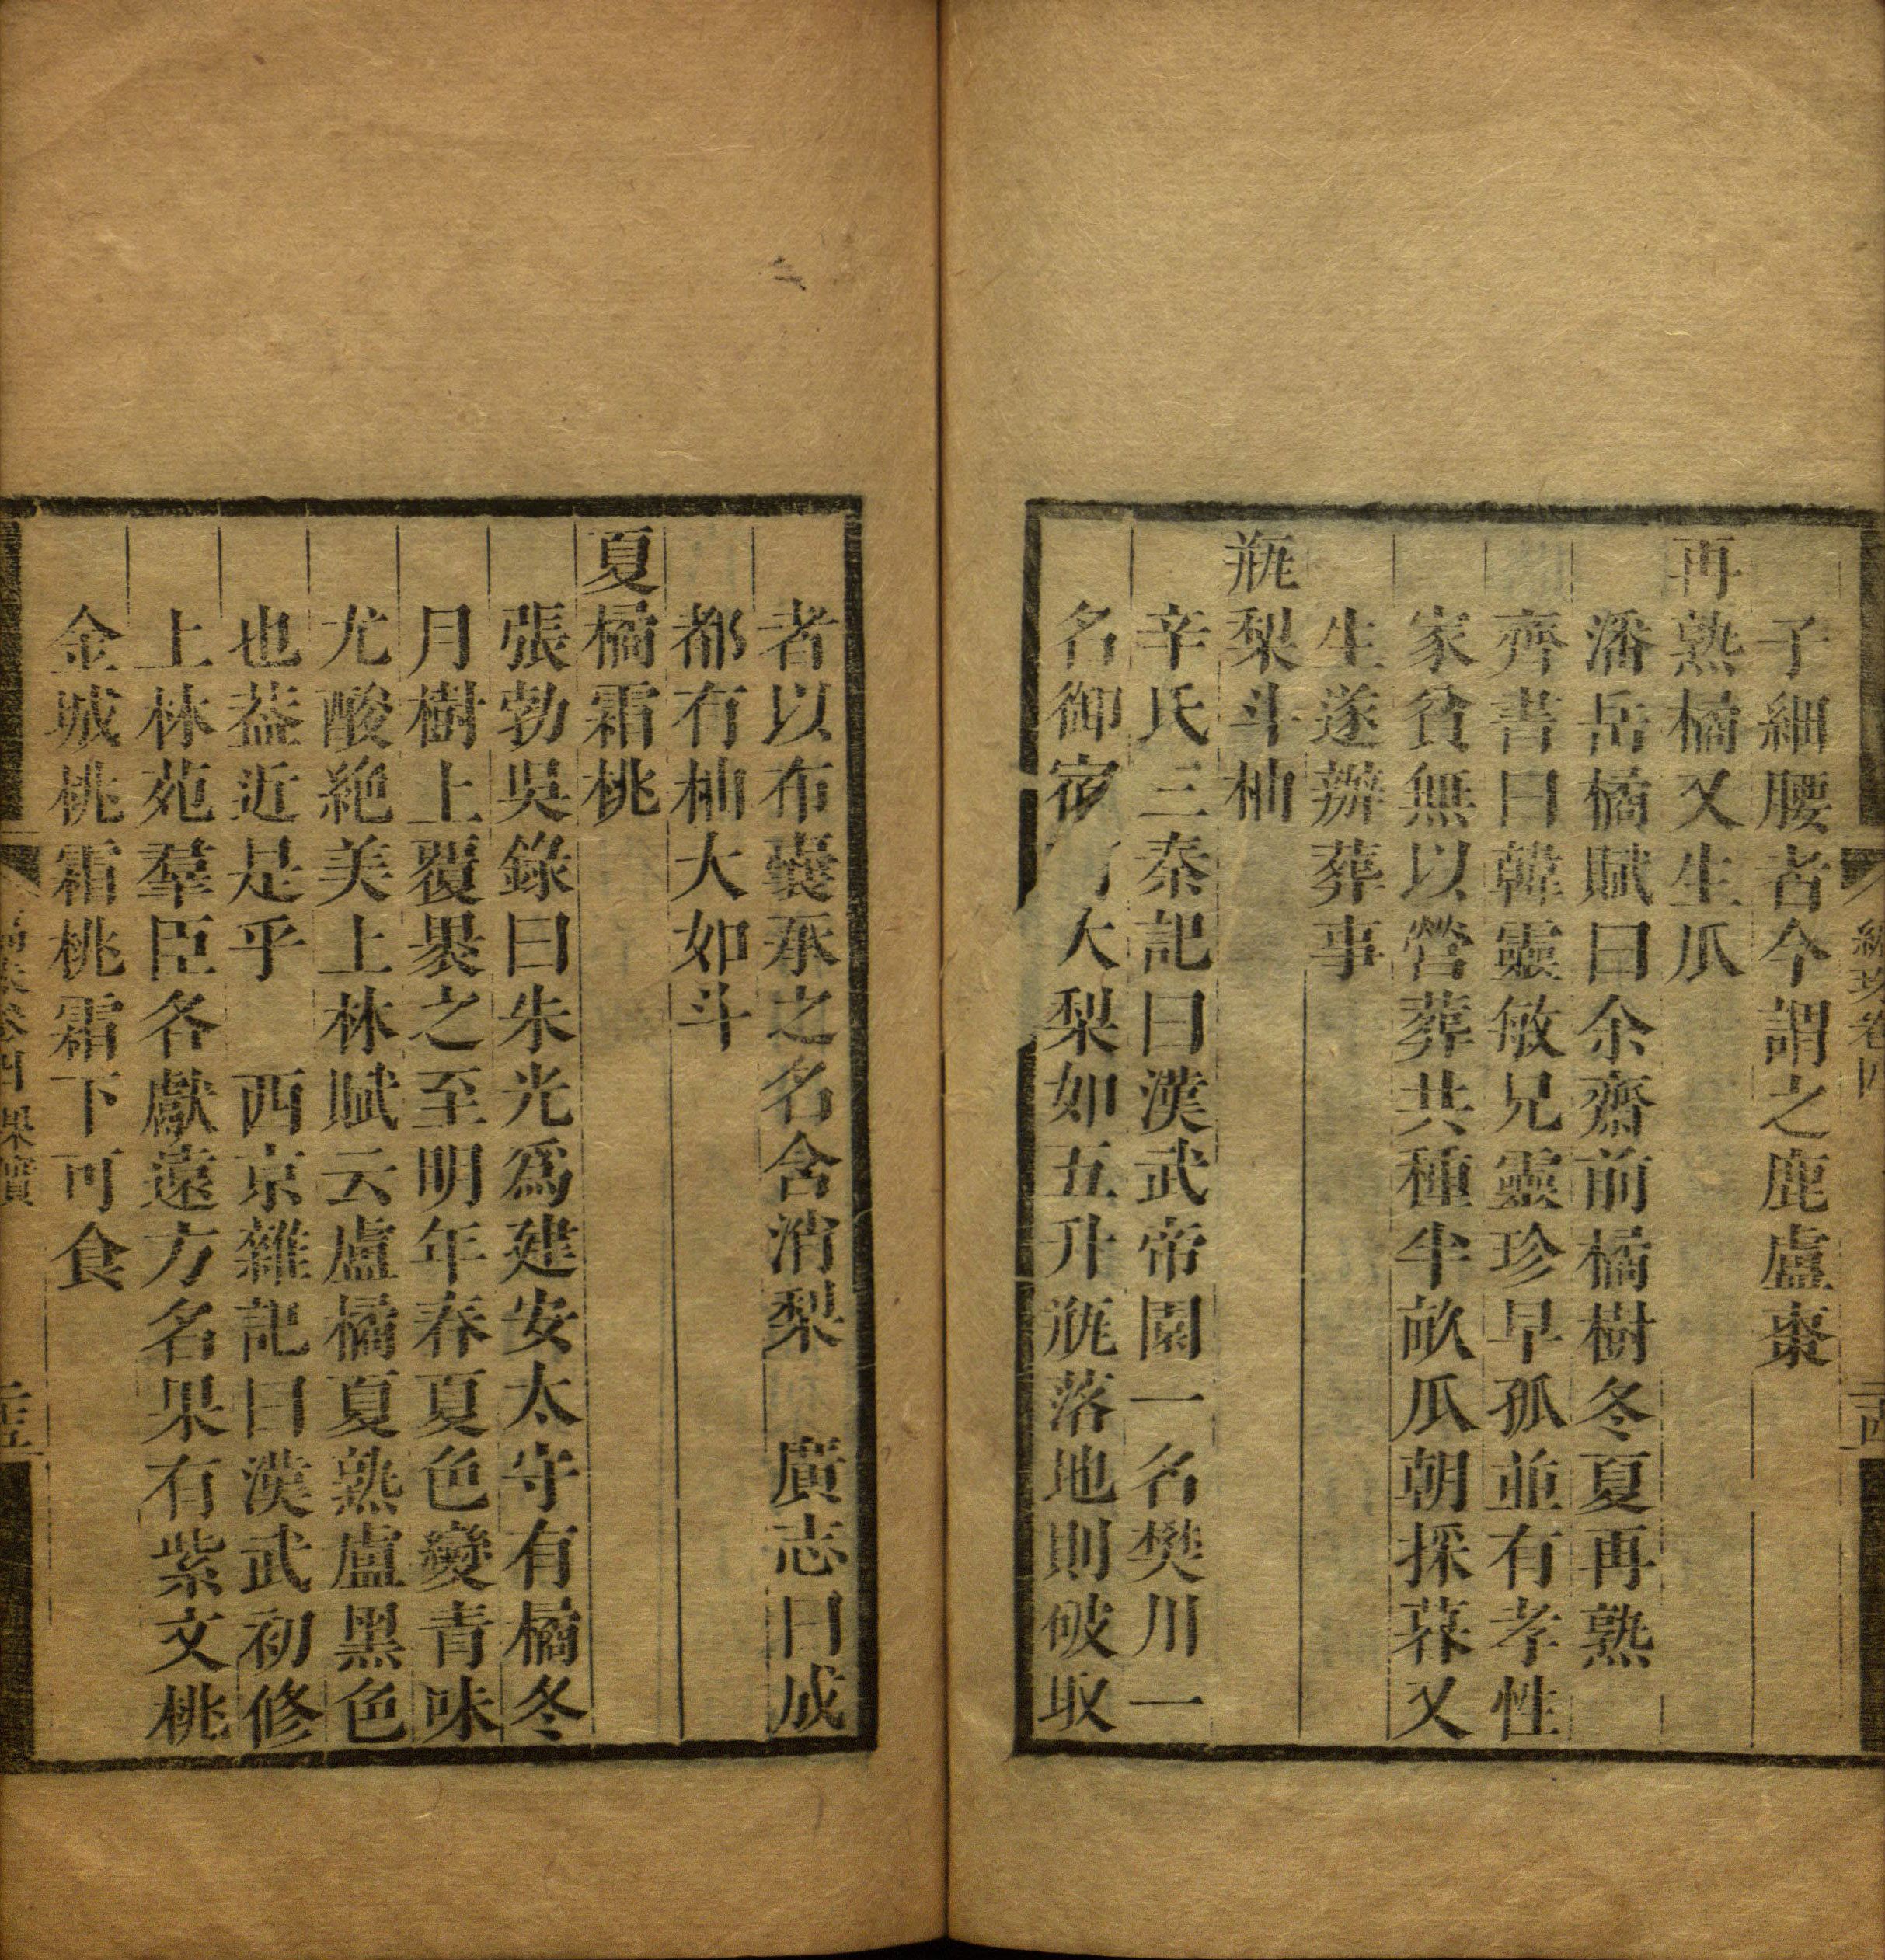 子細腰者今謂之鹿盧棗
再熟橘又生瓜
潘岳橘賦曰余齋前橘樹冬夏再熟
齊書曰韓靈敏兄靈珍早孤並有孝性
家貧無以營葬共種半畝瓜朝採暮又
生遂辦葬事
瓶梨斗柚
辛氏三秦記曰漢武帝園一名樊川一
名御宿有大梨如五升瓶落地則破取
者以布囊承之名含消梨　廣志曰成
都有柚大如斗
夏橘霜桃
張勃吳錄曰朱光爲建安太守有橘冬
月樹上覆褁之至明年春夏色變青味
尤酸絶美上林賦云盧橘夏熟盧黑色
也葢近是乎　西京雜記曰漢武初修
上林苑羣臣各獻遠方名果有紫文桃
金城桃霜桃霜下可食
果實